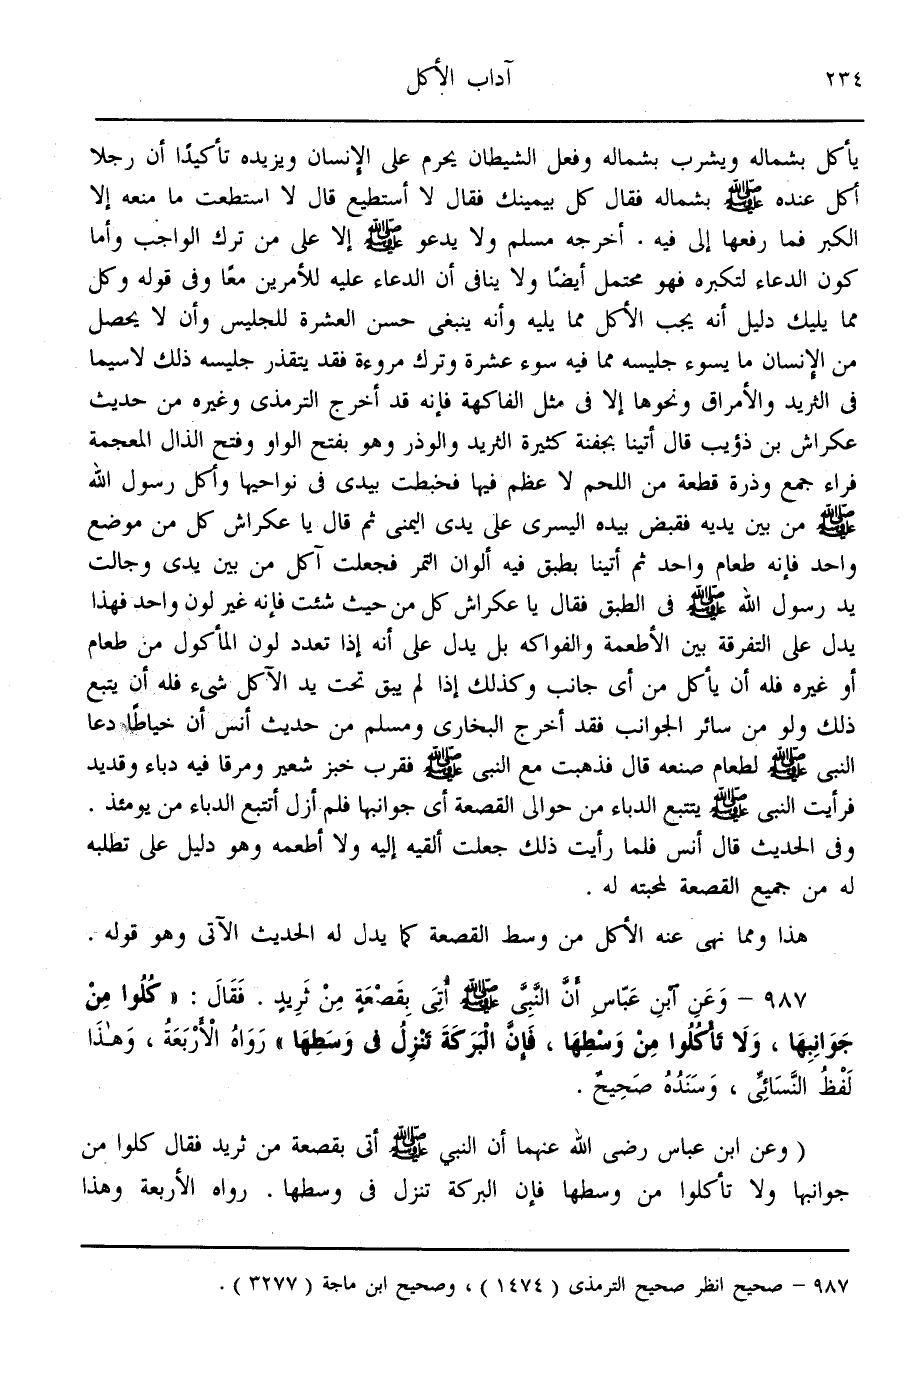 ٢٣٤
آداب الأكل
يأكل بشماله ويشرب بشماله وفعل الشيطان يحرم على الإنسان ويزيده تأكيدًا أن رجلا
أكل عنده ﷺ بشماله فقال كل بيمينك فقال لا أستطيع قال لا استطعت ما منعه إلا
الكبر فما رفعها إلى فيه . أخرجه مسلم ولا يدعو ﷺ إلا على من ترك الواجب وأما
كون الدعاء لتكبره فهو محتمل أيضًا ولا ينافى أن الدعاء عليه للأمرين معًا وفى قوله وكل
مما يليك دليل أنه يجب الأكل مما يليه وأنه ينبغى حسن العشرة للجليس وأن لا يحصل
من الإنسان ما يسوء جليسه مما فيه سوء عشرة وترك مروءة فقد يتقذر جليسه ذلك لاسيما
فى الثريد والأمراق ونحوها إلا فى مثل الفاكهة فإنه قد أخرج الترمذى وغيره من حديث
عكراش بن ذؤيب قال أتينا بجفنة كثيرة الثريد والوذر وهو بفتح الواو وفتح الذال المعجمة
فراء جمع وذرة قطعة من اللحم لا عظم فيها فخبطت بيدى فى نواحيها وأكل رسول الله
ﷺ من بين يديه فقبض بيده اليسرى على يدى اليمنى ثم قال يا عكراش كل من موضع
واحد فإنه طعام واحد ثم أتينا بطبق فيه ألوان التمر فجعلت آكل من بين يدى وجالت
يد رسول الله ﷺ فى الطبق فقال يا عكراش كل من حيث شئت فإنه غير لون واحد فهذا
يدل على التفرقة بين الأطعمة والفواكه بل يدل على أنه إذا تعدد لون المأكول من طعام
أو غيره فله أن يأكل من أى جانب وكذلك إذا لم يبق تحت يد الآكل شىء فله أن يتبع
ذلك ولو من سائر الجوانب فقد أخرج البخارى ومسلم من حديث أنس أن خياطًا دعا
النبى ﷺ لطعام صنعه قال فذهبت مع النبى ﷺ فقرب خبز شعير ومرقا فيه دباء وقديد
فرأيت النبى ﷺ يتتبع الدباء من حوالى القصعة أى جوانبها فلم أزل أتتبع الدباء من يومئذ .
وفى الحديث قال أنس فلما رأيت ذلك جعلت ألقيه إليه ولا أطعمه وهو دليل على تطلبه
له من جميع القصعة لمحبته له .
هذا ومما نهى عنه الأكل من وسط القصعة كما يدل له الحديث الآتى وهو قوله .
٩٨٧ – وَعَنِ ٱبنِ عَبّاسٍ أَنَّ النَّبِىَّ ﷺ أُتِىَ بِقَصْعَةٍ مِنْ ثَرِيدٍ . فَقَالَ : « كُلُوا مِنْ
جَوَانِبِهَا ، وَلَا تَأْكُلُوا مِنْ وَسْطِهَا ، فَإِنَّ الْبَرَكَةَ تَنْزِلُ فى وَسَطِهَا » رَوَاهُ الْأَرْبَعَةُ ، وَهـٰذَا
لَفْظُ النَّسَائِىِّ ، وَسَنَدُهُ صَحِيحٌ .
( وعن ابن عباس رضى الله عنهما أن النبي ﷺ أتى بقصعة من ثريد فقال كلوا من
جوانبها ولا تأكلوا من وسطها فإن البركة تنزل فى وسطها . رواه الأربعة وهذا
٩٨٧ – صحيح انظر صحيح الترمذى ( ١٤٧٤ ) ، وصحيح ابن ماجة ( ٣٢٧٧ ) .